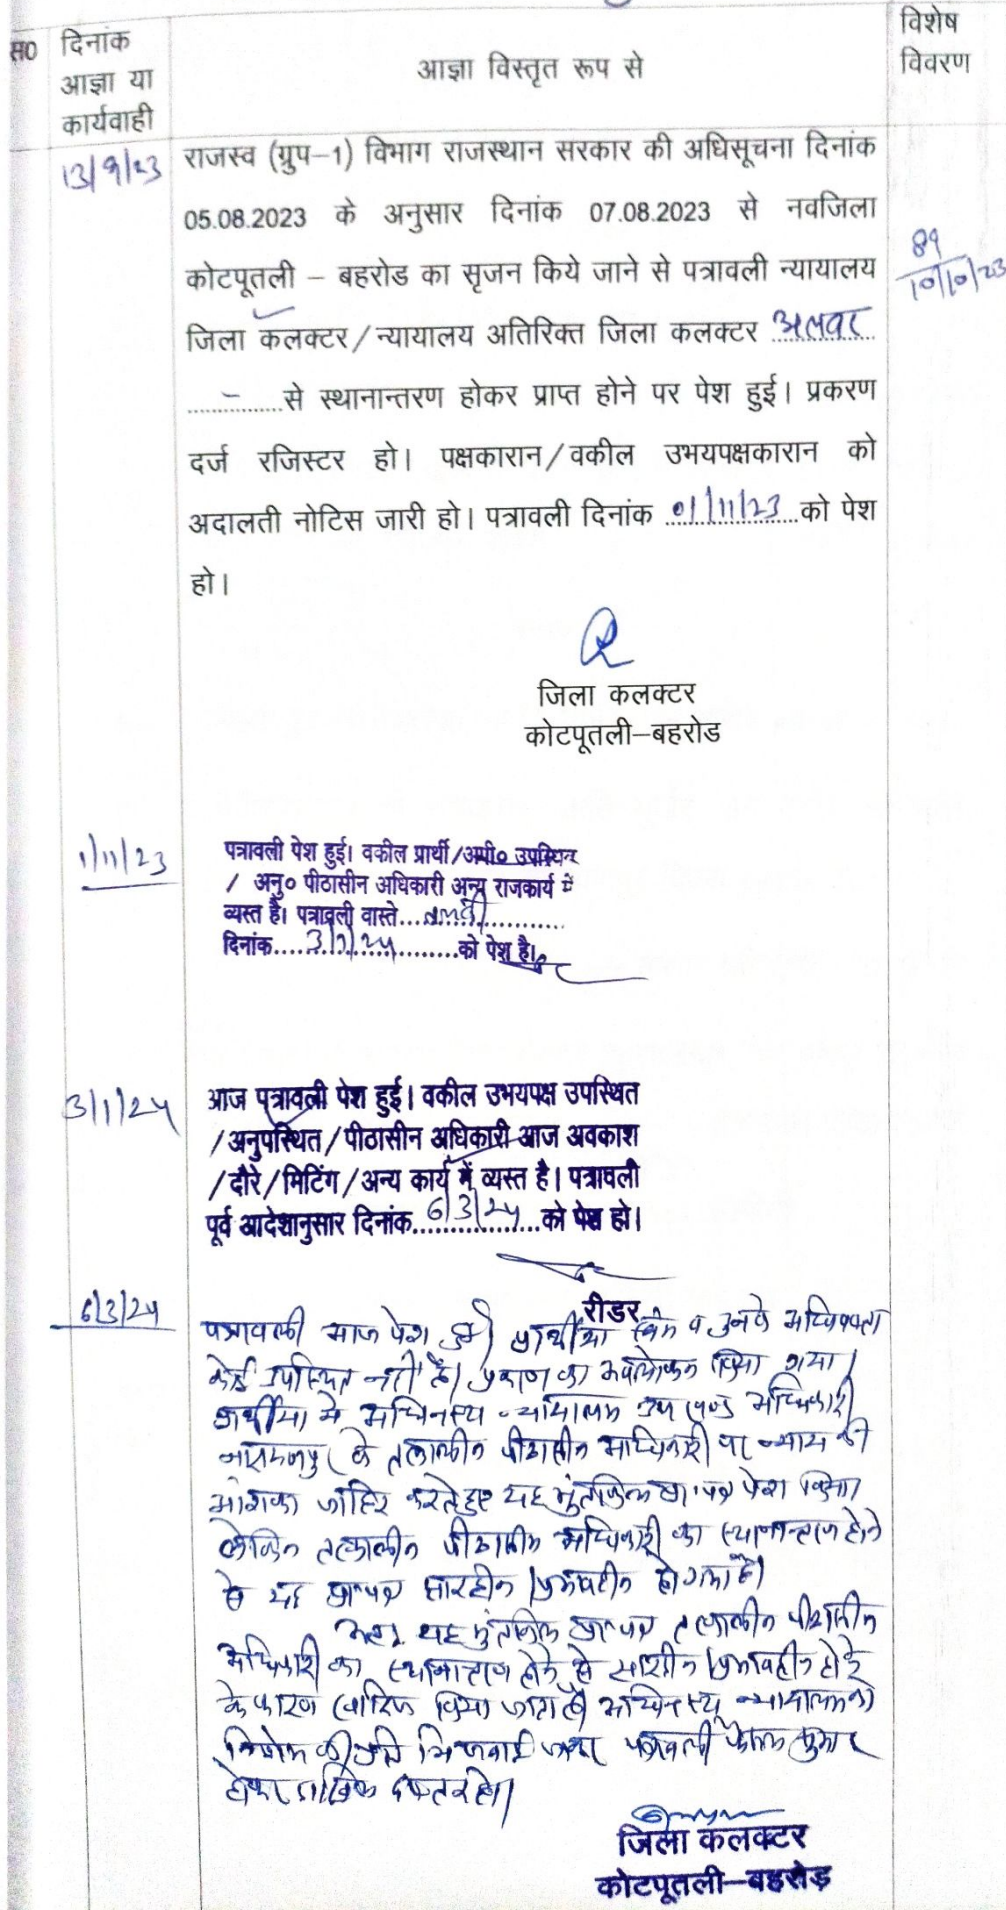 स0 दिनांक आज्ञा या कार्यवाही
आज्ञा विस्तृत रूप से
विशेष विवरण
13/9/23
राजस्व (ग्रुप–1) विभाग राजस्थान सरकार की अधिसूचना दिनांक
05.08.2023 के अनुसार दिनांक 07.08.2023 से नवजिला
कोटपूतली – बहरोड का सृजन किये जाने से पत्रावली न्यायालय
जिला कलक्टर/न्यायालय अतिरिक्त जिला कलक्टर अलवर
.............. से स्थानान्तरण होकर प्राप्त होने पर पेश हुई। प्रकरण
दर्ज रजिस्टर हो। पक्षकारान/वकील उभयपक्षकारान को
अदालती नोटिस जारी हो। पत्रावली दिनांक 01/11/23 को पेश
हो।
89
10/10/23
जिला कलक्टर
कोटपूतली–बहरोड
1/11/23
पत्रावली पेश हुई। वकील प्रार्थी/अप्री० उपस्थित
/ अनु० पीठासीन अधिकारी अन्य राजकार्य में
व्यस्त है। पत्रावली वास्ते
दिनांक 3/1/24 को पेश है।
3/1/24
आज पत्रावली पेश हुई। वकील उभयपक्ष उपस्थित
/अनुपस्थित/पीठासीन अधिकारी आज अवकाश
/दौरे/मिटिंग/अन्य कार्य में व्यस्त है। पत्रावली
पूर्व आदेशानुसार दिनांक 6/3/24 को पेश हो।
रीडर
6/3/24
पत्रावली आज पेश हुई। प्रार्थीया स्वयं व उनके अधिवक्ता
कोई उपस्थित नहीं है। प्रकरण का अवलोकन किया गया।
प्रार्थीया ने अधिनस्थ न्यायालय उप खण्ड अधिकारी
के तत्कालीन पीठासीन अधिकारी पर न्याय की
जाहिर करते हुए यह मुंतकिल प्रा. पत्र पेश किया।
लेकिन तत्कालीन पीठासीन अधिकारी का स्थानान्तरण होने
से यह प्रा. पत्र सारहीन/प्रभावहीन हो गया है।
अतः यह मुंतकिल प्रा. पत्र तत्कालीन पीठासीन
अधिकारी का स्थानान्तरण होने से सारहीन/प्रभावहीन होने
के कारण खारिज किया जाता है। अधिनस्थ न्यायालय को
निर्णय की प्रति भिजवाई जाकर पत्रावली फैसल शुमार
होकर दाखिल दफ्तर हो।
जिला कलक्टर
कोटपूतली–बहरोड़